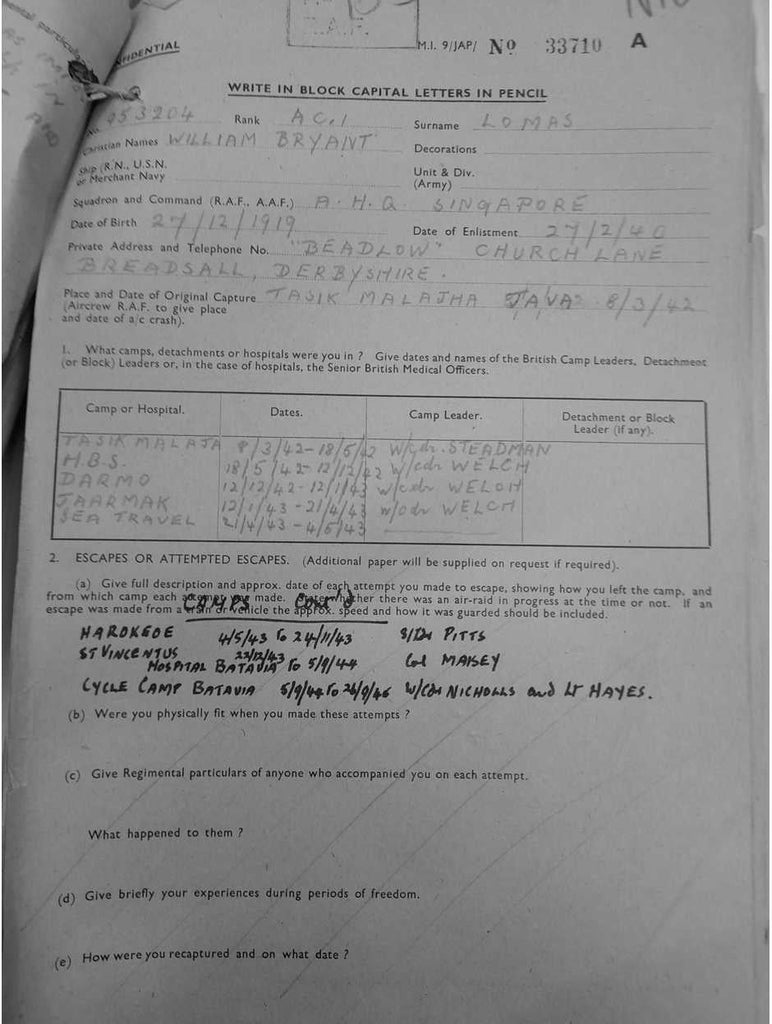 R.A.F.
M.I. 9/JAP/ No 33710 A
WRITE IN BLOCK CAPITAL LETTERS IN PENCIL
No. 953204 Rank A C. 1 Surname LOMAS
Christian Names WILLIAM BRYANT Decorations
Ship (R.N., U.S.N. or Merchant Navy Unit & Div. (Army)
Squadron and Command (R.A.F., A.A.F.) A.H.Q. SINGAPORE
Date of Birth 27/12/1919 Date of Enlistment 27/2/40
Private Address and Telephone No. "BEADLOW" CHURCH LANE
BREADSALL, DERBYSHIRE.
Place and Date of Original Capture TASIK MALAJHA JAVA 8/3/42
(Aircrew R.A.F. to give place
and date of a/c crash).
1. What camps, detachments or hospitals were you in ? Give dates and names of the British Camp Leaders, Detachment
(or Block) Leaders or, in the case of hospitals, the Senior British Medical Officers.
Camp or Hospital. Dates. Camp Leader. Detachment or Block Leader (if any).
TASIK MALAJA 8/3/42-18/5/42 W/Cdr. STEADMAN
H.B.S. 18/5/42-12/12/42 W/cdr WELCH
DARMO 12/12/42-12/1/43 w/cdr WELCH
JAARMAK 12/1/43-21/4/43 w/cdr WELCH
SEA TRAVEL 21/4/43-4/5/43
2. ESCAPES OR ATTEMPTED ESCAPES. (Additional paper will be supplied on request if required).
(a) Give full description and approx. date of each attempt you made to escape, showing how you left the camp, and
from which camp each attempt was made. State whether there was an air-raid in progress at the time or not. If an
escape was made from a train or vehicle the approx. speed and how it was guarded should be included.
CAMPS Cont'd
HAROKEOE 4/5/43 to 24/11/43 S/Ldr PITTS
ST VINCENTUS 22/12/43
HOSPITAL BATAVIA to 5/9/44 Col MAISEY
CYCLE CAMP BATAVIA 5/9/44 to 26/9/45 W/Cdr NICHOLLS and LT HAYES.
(b) Were you physically fit when you made these attempts ?
(c) Give Regimental particulars of anyone who accompanied you on each attempt.
What happened to them ?
(d) Give briefly your experiences during periods of freedom.
(e) How were you recaptured and on what date ?